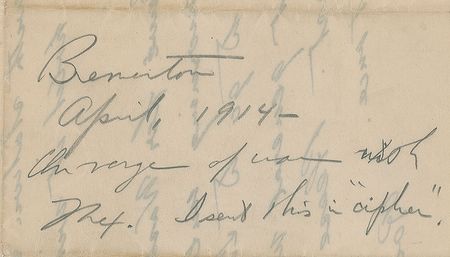 Bremerton
April, 1914-
On verge of war with
Mex. I sent this in "cipher".